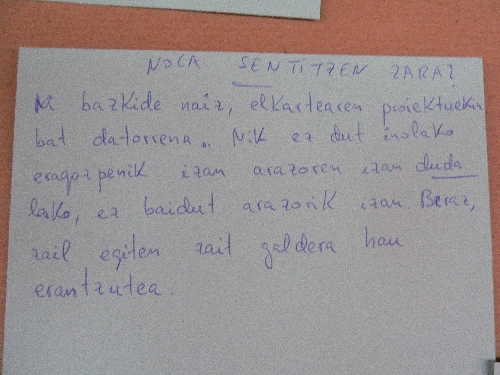 NOLA SENTITZEN ZARA?
Ni bazkide naiz, elkartearen proiektuekin
bat datorrena.. Nik ez dut inolako
eragozpenik izan arazoren izan duda
lako, ez baidut arazorik izan. Beraz,
zail egiten zait galdera hau
erantzutea.